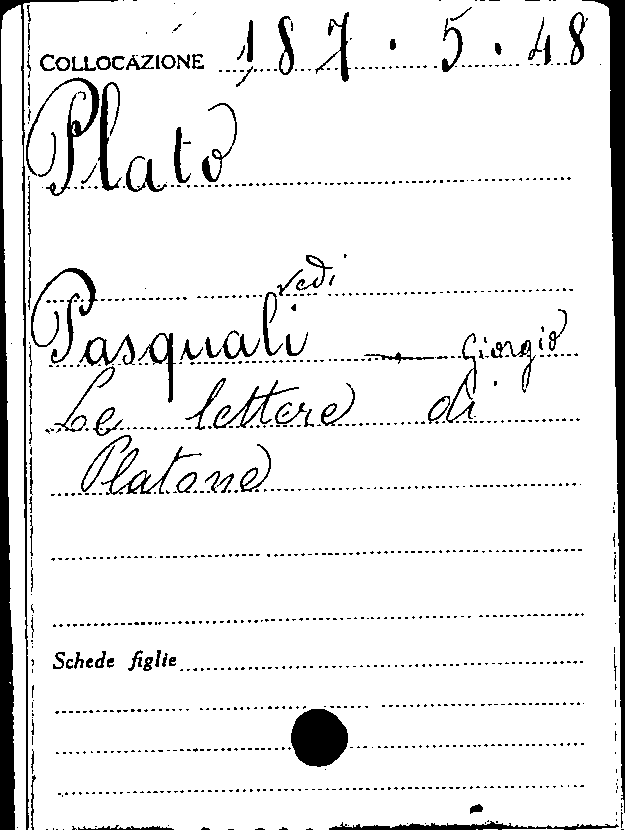 COLLOCAZIONE 187.5.48
Plato
vedi
Pasquali — Giorgio
Le lettere di
Platone
Schede figlie